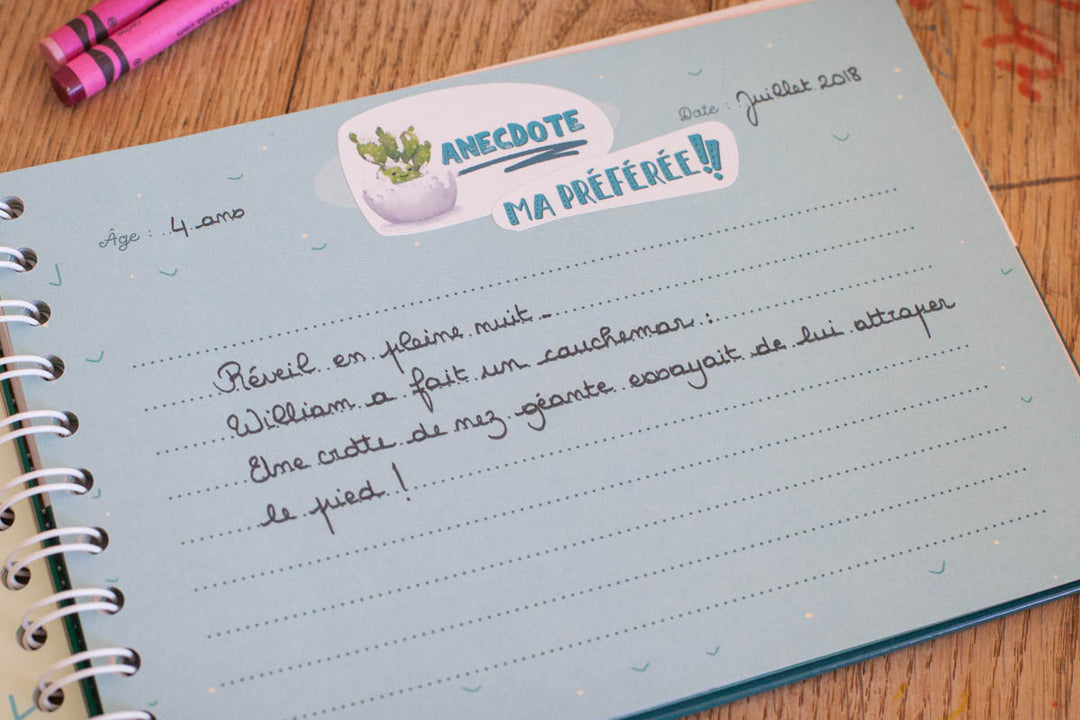 ANECDOTE
MA PRÉFÉRÉE!!
Date : Juillet 2018
Âge : 4 ans
Réveil en pleine nuit.
William a fait un cauchemar :
Une crotte de nez géante essayait de lui attraper
le pied !